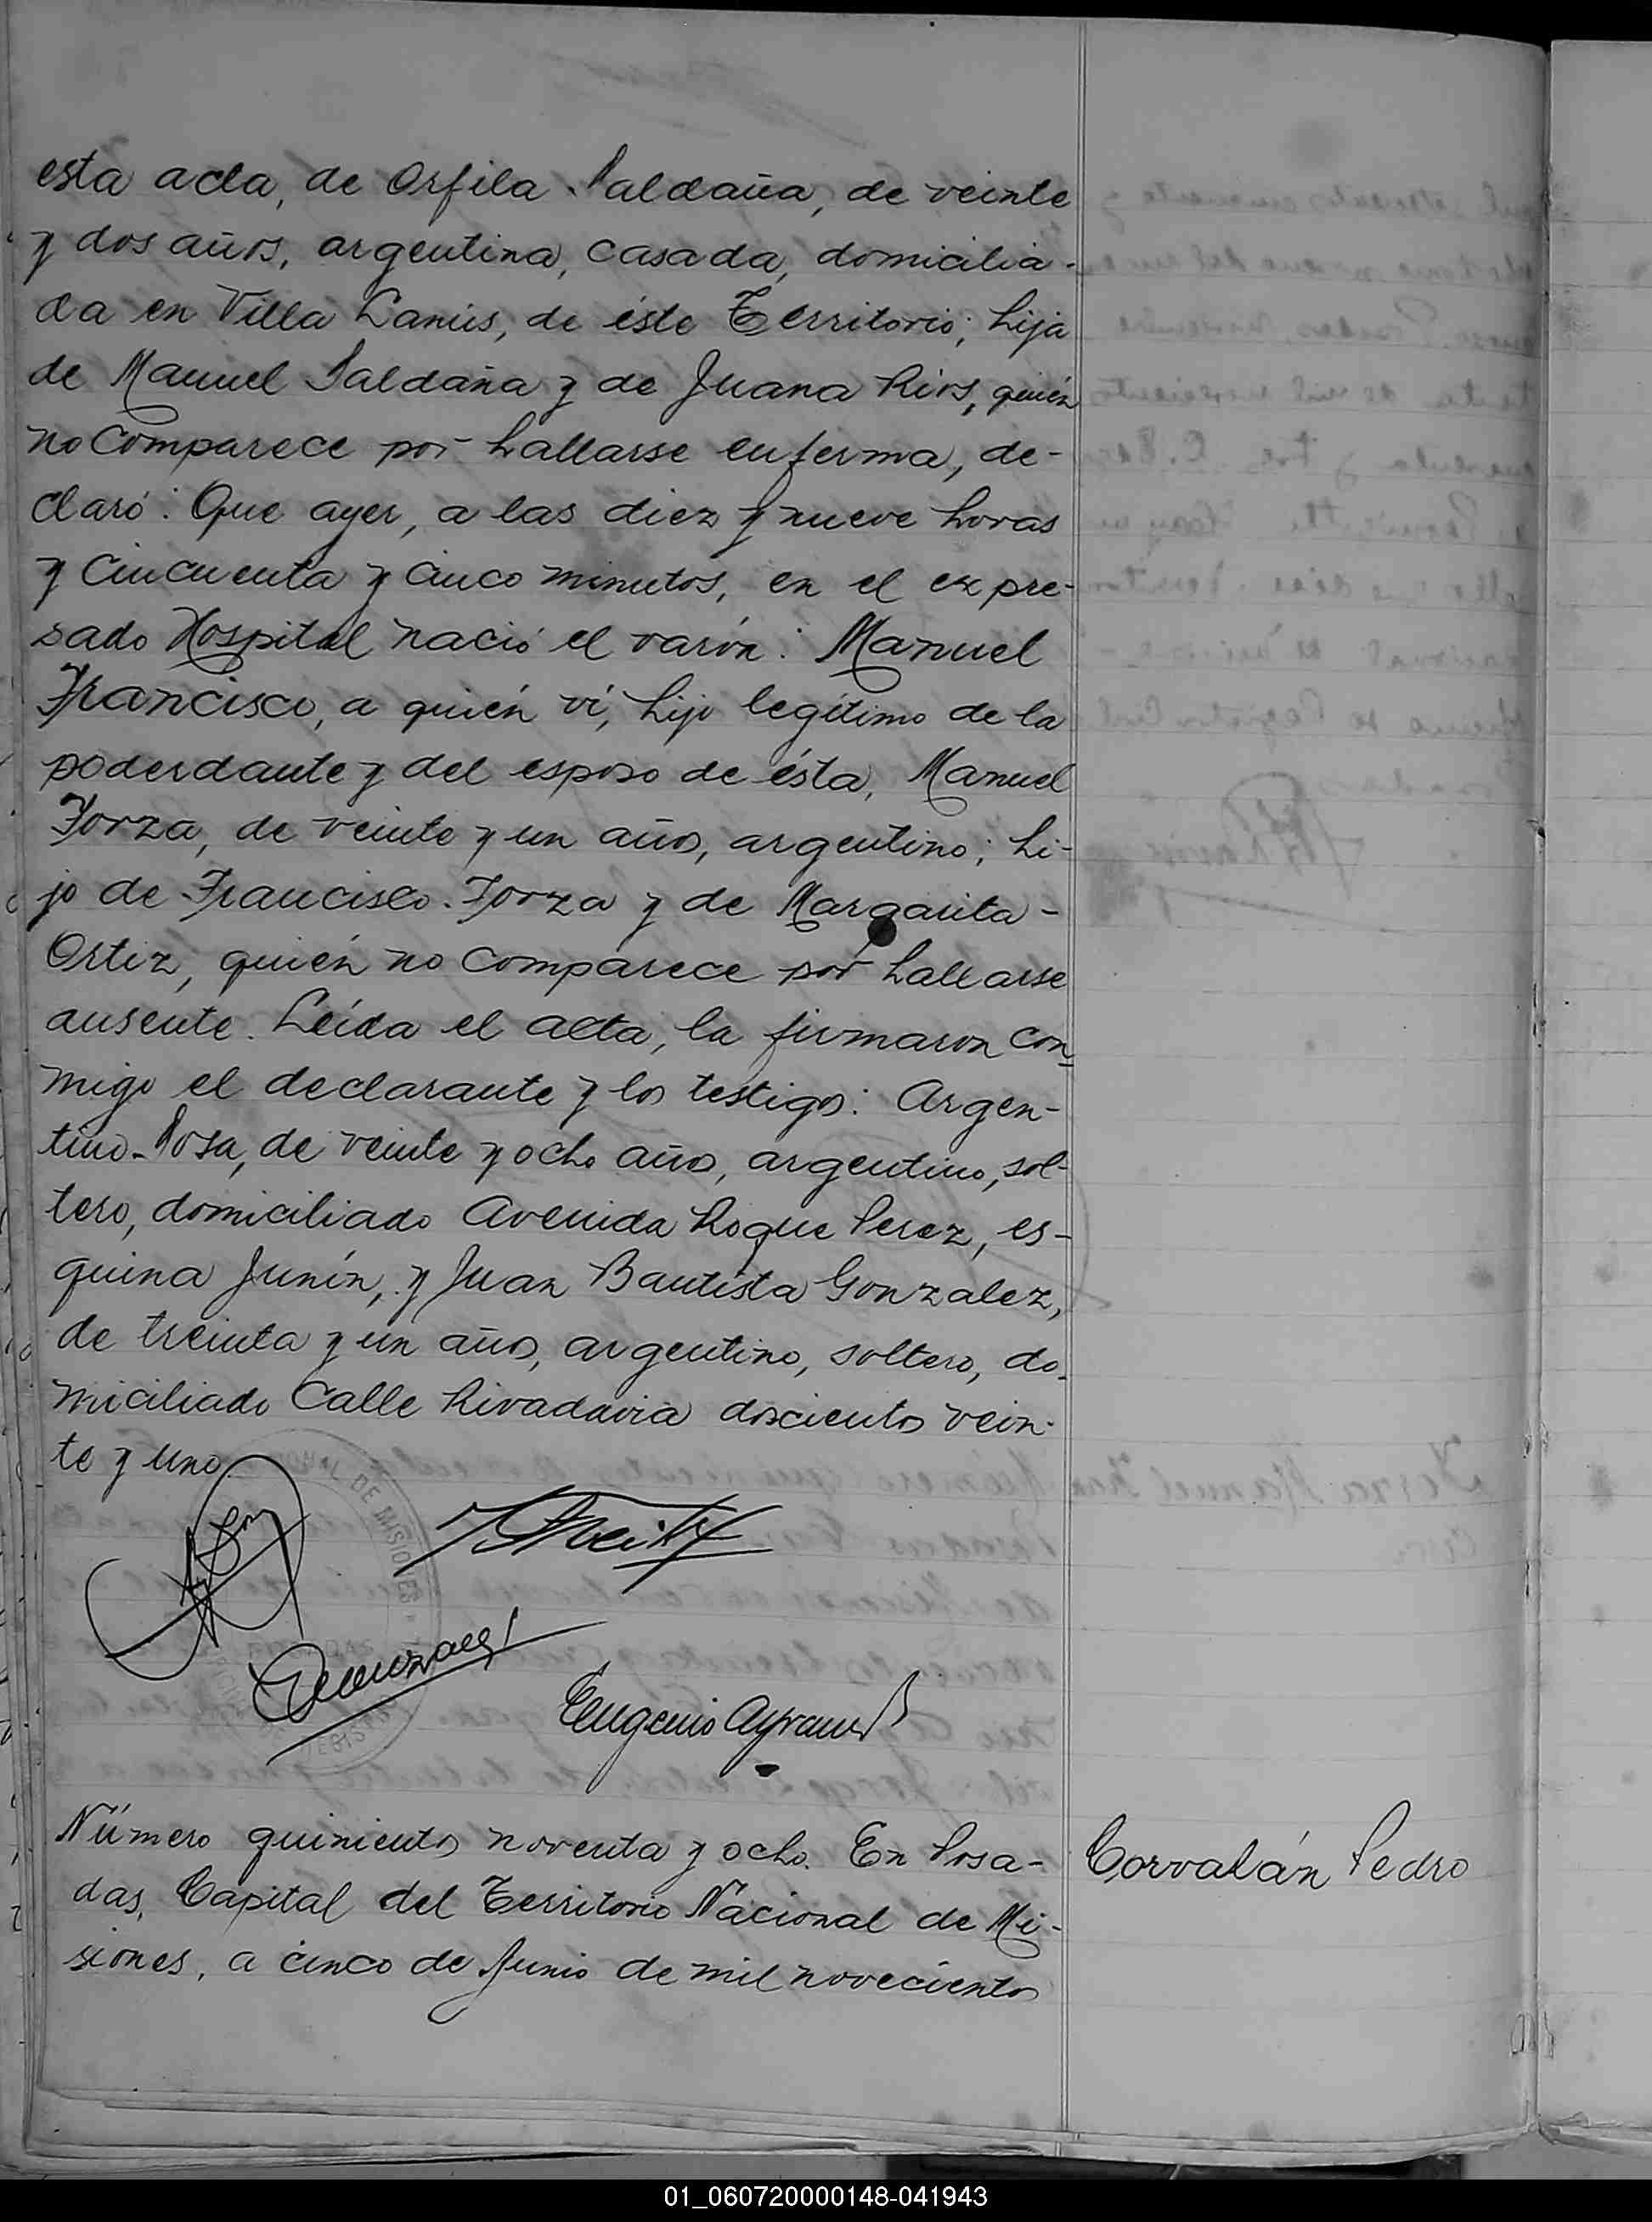 esta acta, de Orfila Saldaña, de veinte
y dos años, argentina, casada, domicilia-
da en Villa Lanús, de éste Territorio; hija
de Manuel Saldaña y de Juana Rios, quién
no comparece por hallarse enferma, de-
claró: Que ayer, a las diez y nueve horas
y cincuenta y cinco minutos, en el expre-
sado Hospital nació el varón: Manuel
Francisco, a quién ví, hijo legítimo de la
poderdante y del esposo de ésta, Manuel
Forza, de veinte y un años, argentino; hi-
jo de Francisco Forza y de Margarita-
Ortiz, quién no comparece por hallarse
ausente. Leída el acta, la firmaron con
migo el declarante y los testigos: Argen-
tino Sosa, de veinte y ocho años, argentino, sol-
tero, domiciliado Avenida Roque Perez, es-
quina Junín, y Juan Bautista Gonzalez,
de treinta y un años, argentino, soltero, do-
miciliado Calle Rivadavia doscientos vein-
te y uno.
DE MISIONES
Gonzalez
Eugenio
Número quinientos noventa y ocho. En Posa-
das, Capital del Territorio Nacional de Mi-
siones, a cinco de Junio de mil novecientos
Corvalán Pedro
01_060720000148-041943